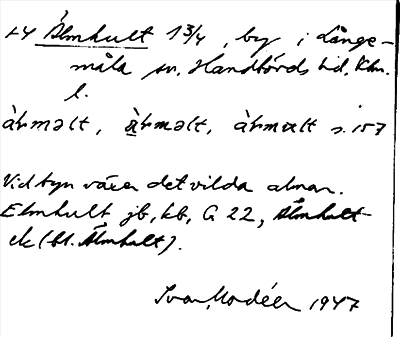 Älmhult 1 3/4, by i Långe-
måla sn, Handbörds hd, Klm.
l.
àḷməlt, àḷməlt, àḷmɷlt s. 157
Vid byn växer det vilda almar.
Elmhult jb, kb, G 22, Älmhult
ek (bl. Älmhult).
Ivar Modéer 1947